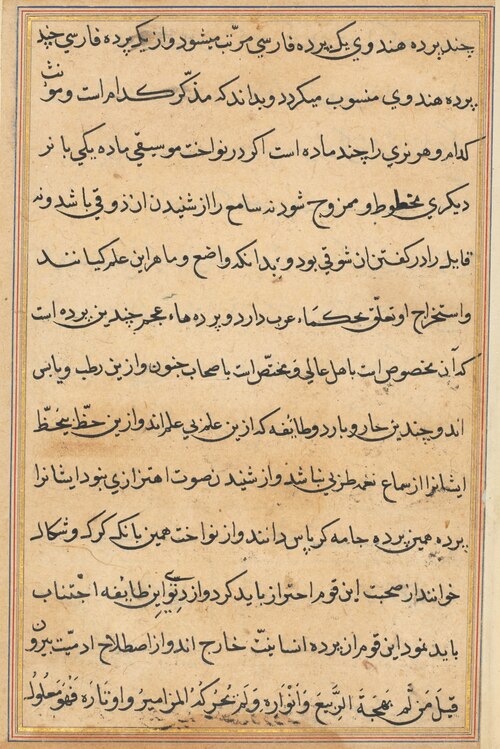 چند پرده هندوی یک پرده فارسی مرتب میشود و از یک پرده فارسی چند
پرده هندوی منسوب میگردد و بداند که مذکّر کدام است و مونث
کدام و هر نری را چند ماده است اگر در نواخت موسیقی ماده یکی با نر
دیگری مخطوط و ممزوج شود نه سامع را از شنیدن آن ذوقی باشد و نه
قایل را در گفتن آن شوقی بود و بدانکه واضع و ماهر این علم کیانند
و استخراج او تعلّق بحکماء عرب دارد و پرده هاء عجم چندین پرده است
که آن مخصوص است باهل عالی و مختصّ است باصحاب جنون و ازین رطب و یابس
اند و چندین حار و بارد و طائفه که ازین علم بی علم اند و ازین حظّ بیحظّ
ایشانرا از سماع نغمه طربی نباشد و از شنیدن صوت اهتزازی نبود ایشانرا
پرده همین پرده جامه کرپاس دانند و از نواخت همین بانک کرک و شکال
خوانند از صحبت این قوم احتراز باید کرد و از دنوّ این طائفه اجتناب
باید نمود این قوم از پرده انسانیّت خارج اند و از اصطلاح ادمیّت بیرون
قیلَ مَن لَّم بهجَة الرَّبیعَ وَاَنْوَارِه وَلَم یحرّکهُ المزامیرُ و اوتارَه فَهُوَ معلُولُ